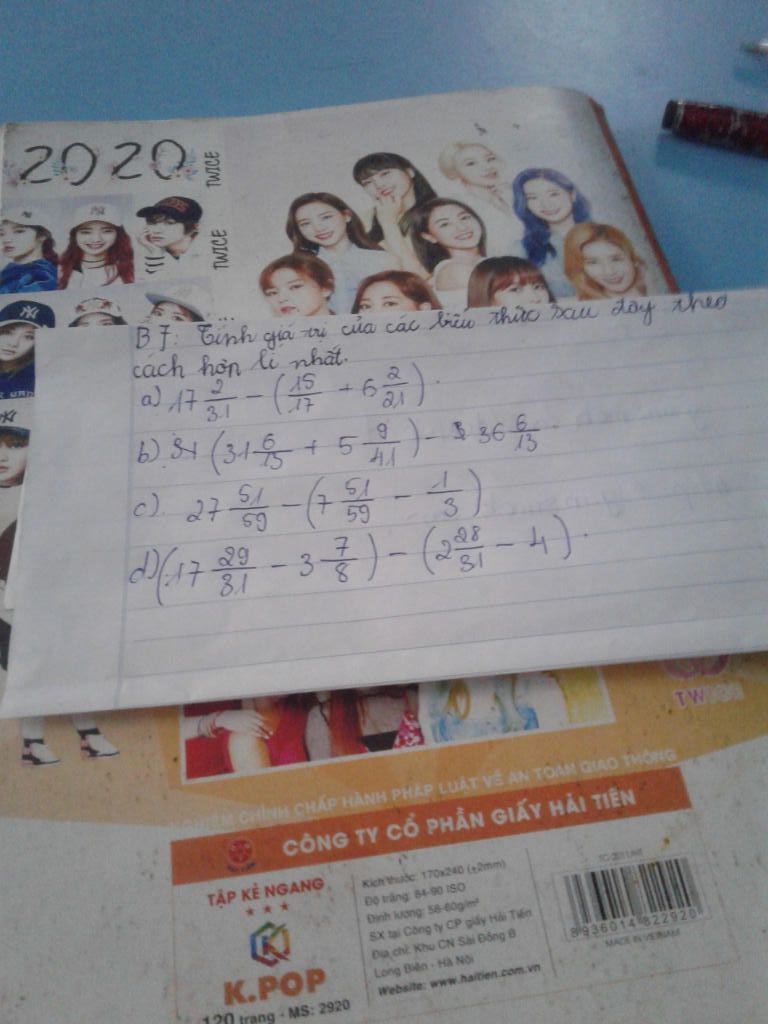 2020
TWICE
TWICE
B7: Tính giá trị của các biểu thức sau đây theo
cách hợp lí nhất.
a) 17 2/31 - (15/17 + 6 2/21).
b) (31 6/13 + 5 9/41) - 36 6/13
c) 27 51/59 - (7 51/59 - 1/3)
d) (17 29/31 - 3 7/8) - (2 28/31 - 4).
NGHIÊM CHỈNH CHẤP HÀNH PHÁP LUẬT VỀ AN TOÀN GIAO THÔNG
CÔNG TY CỔ PHẦN GIẤY HẢI TIẾN
TẬP KẺ NGANG
K.POP
120 trang - MS: 2920
Kích thước: 170x240 (±2mm)
Độ trắng: 84-90 ISO
Định lượng: 58-60g/m²
SX tại Công ty CP giấy Hải Tiến
Địa chỉ: Khu CN Sài Đồng B
Long Biên - Hà Nội
Website: www.haitien.com.vn
8936014 822920
MADE IN VIETNAM